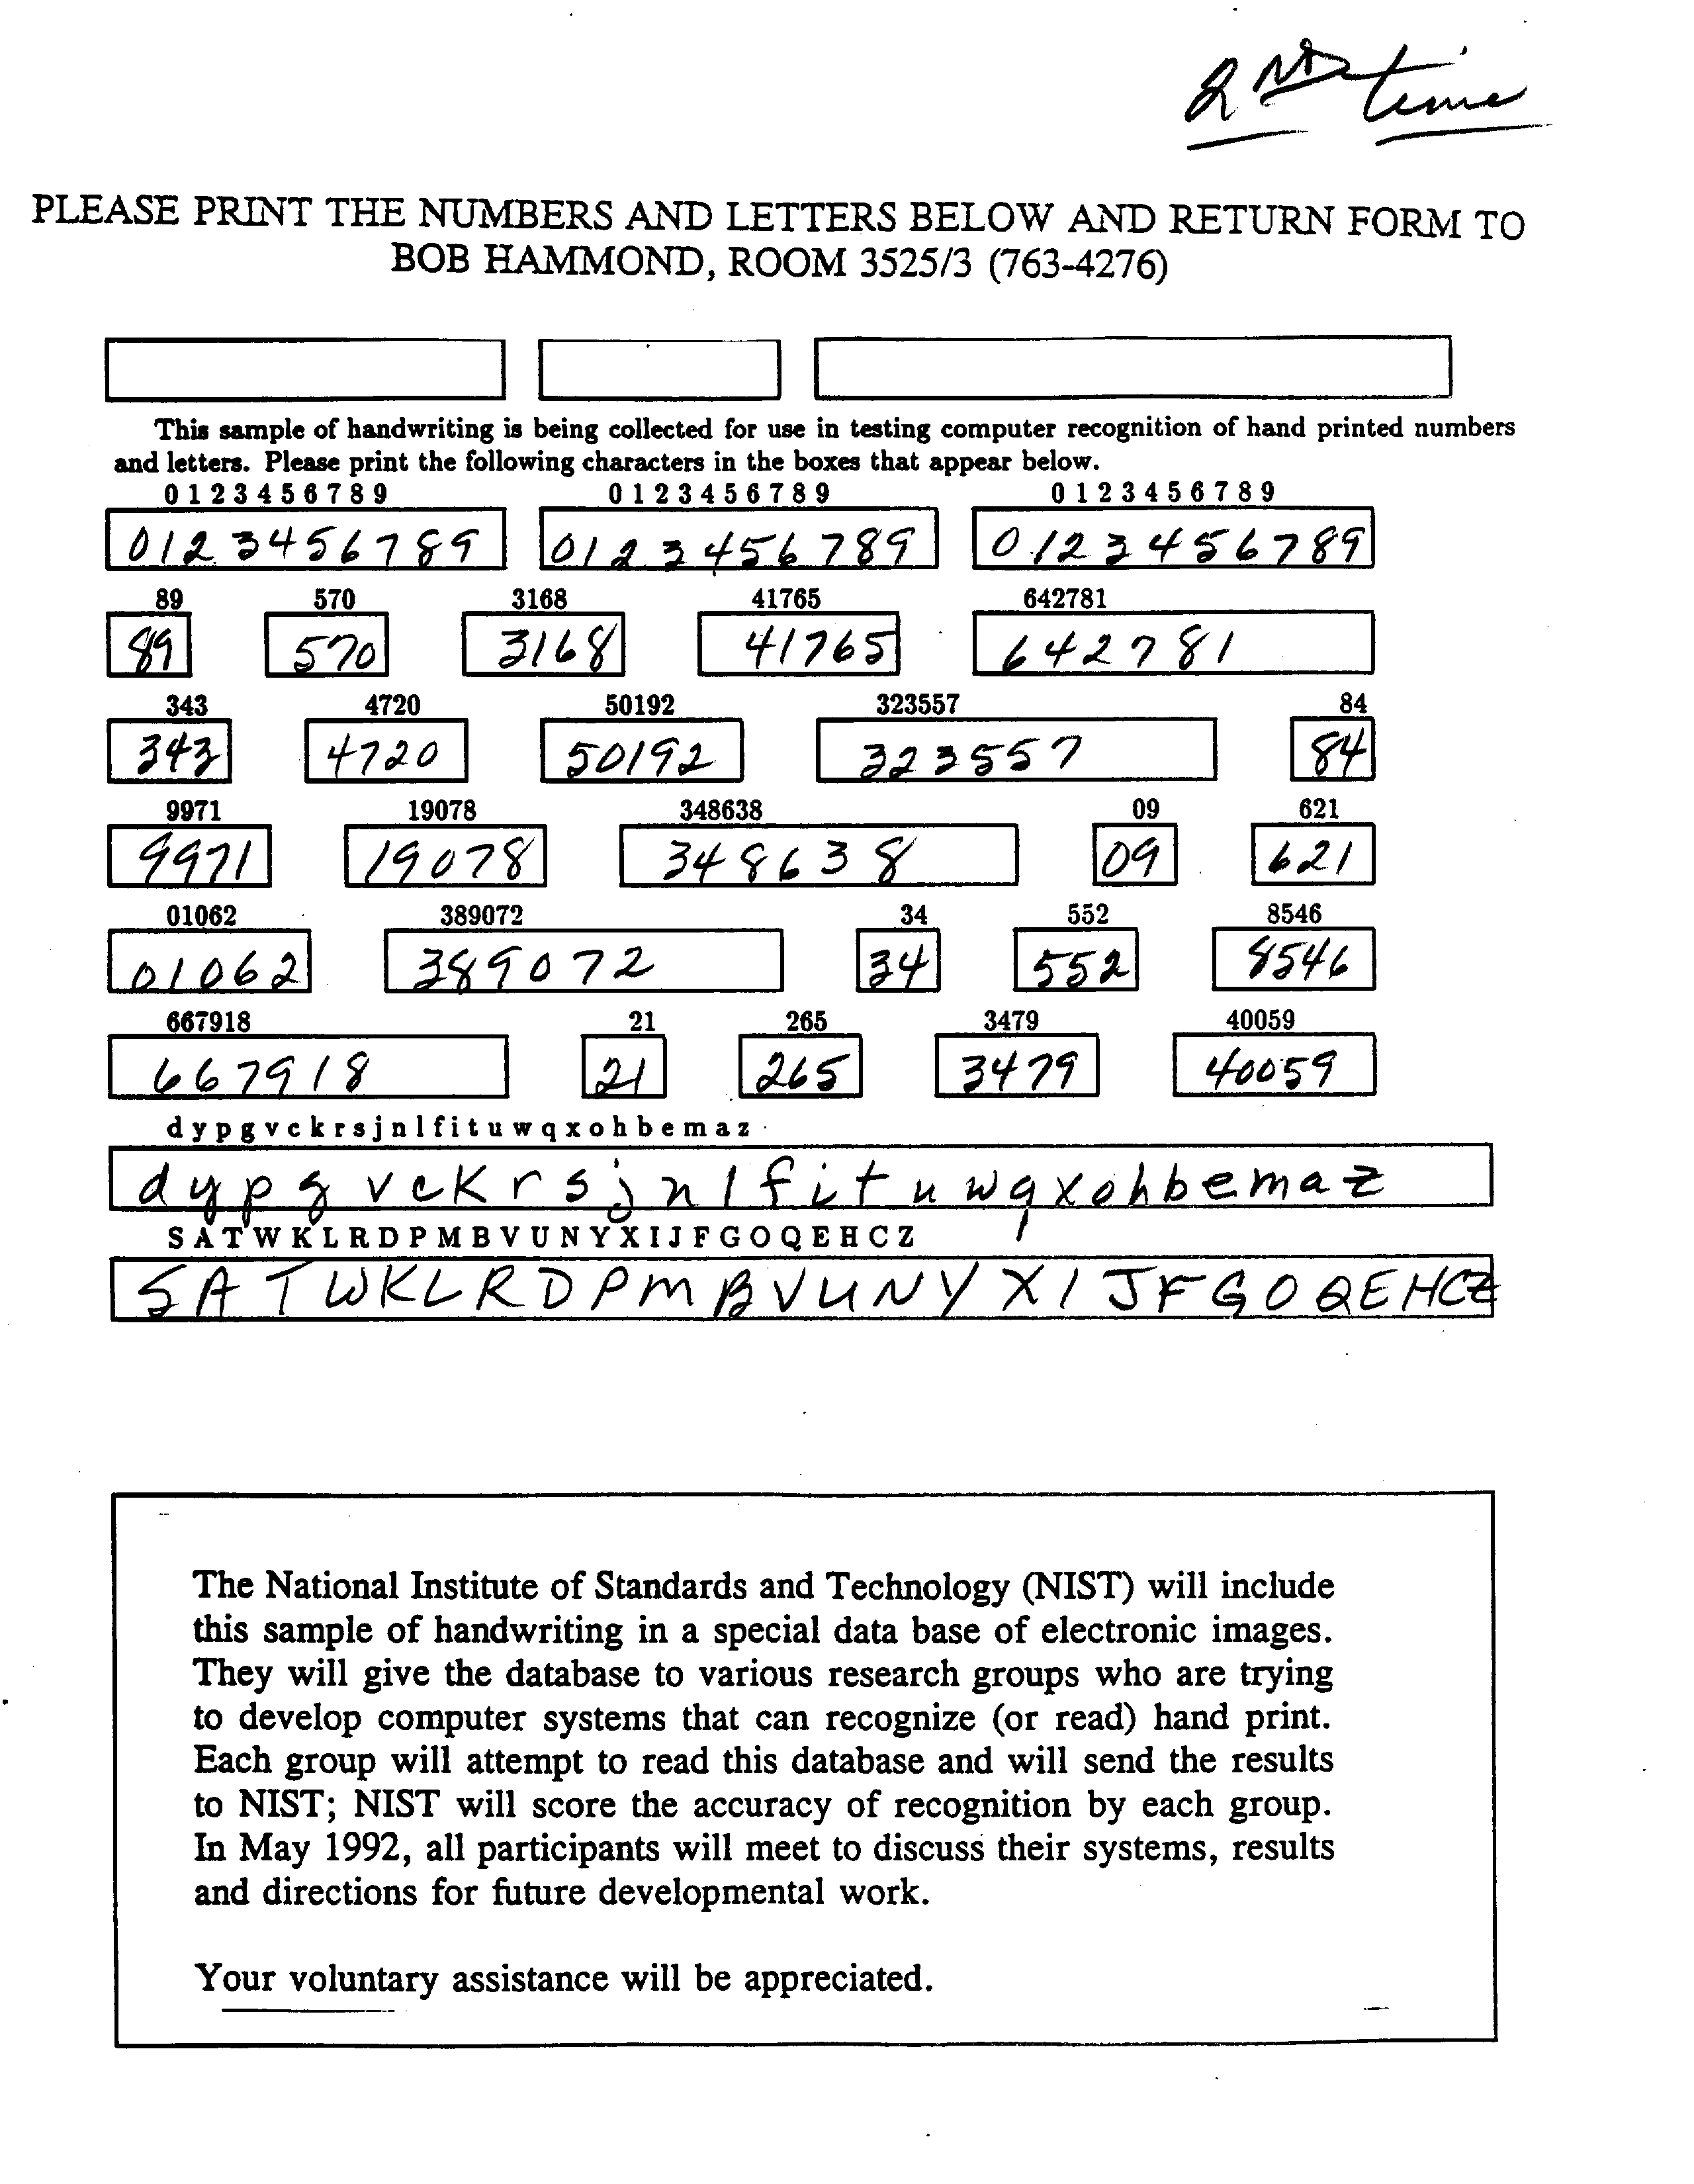 2nd time
PLEASE PRINT THE NUMBERS AND LETTERS BELOW AND RETURN FORM TO
BOB HAMMOND, ROOM 3525/3 (763-4276)
This sample of handwriting is being collected for use in testing computer recognition of hand printed numbers
and letters. Please print the following characters in the boxes that appear below.
0 1 2 3 4 5 6 7 8 9 0 1 2 3 4 5 6 7 8 9 0 1 2 3 4 5 6 7 8 9
0123456789 0123456789 0123456789
89 570 3168 41765 642781
89 570 3168 41765 642781
343 4720 50192 323557 84
343 4720 50192 323557 84
9971 19078 348638 09 621
9971 19078 348638 09 621
01062 389072 34 552 8546
01062 389072 34 552 8546
667918 21 265 3479 40059
667918 21 265 3479 40059
d y p g v c k r s j n l f i t u w q x o h b e m a z
d y p g v c k r s j n l f i t u w q x o h b e m a z
S A T W K L R D P M B V U N Y X I J F G O Q E H C Z
S A T W K L R D P M B V U N Y X I J F G O Q E H C Z
The National Institute of Standards and Technology (NIST) will include
this sample of handwriting in a special data base of electronic images.
They will give the database to various research groups who are trying
to develop computer systems that can recognize (or read) hand print.
Each group will attempt to read this database and will send the results
to NIST; NIST will score the accuracy of recognition by each group.
In May 1992, all participants will meet to discuss their systems, results
and directions for future developmental work.
Your voluntary assistance will be appreciated.